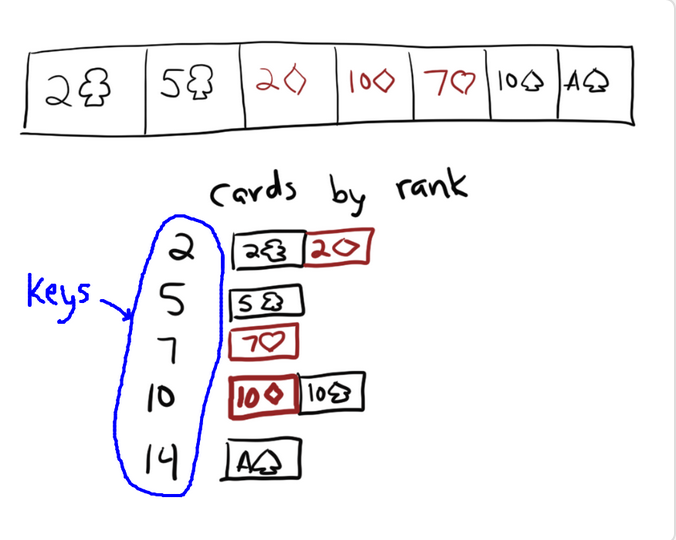 2♧ 5♧ 2♢ 10♢ 7♡ 10♤ A♤
cards by rank
2 2♧ 2♢
Keys
5 5♧
7 7♡
10 10♢ 10♤
14 A♤